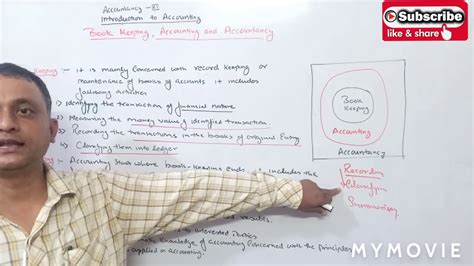 Accountancy - XI
Introduction to Accounting
Book Keeping, Accounting and Accountancy
Keeping :- it is mainly Concerned with record keeping or
maintenance of books of accounts it includes
following activities
Identifying the transaction of financial nature
2) Measuring the money value of identified transaction
3) Recording the transactions in the books of original Entry
Classifying them into ledger
Accounting start where book-keeping ends. it includes the
results.
to interested Parties
knowledge of accounting Concerned with the principles
applied in accounting.
Book
Keeping
Accounting
Accountancy
Subscribe
like & share
MYMOVIE